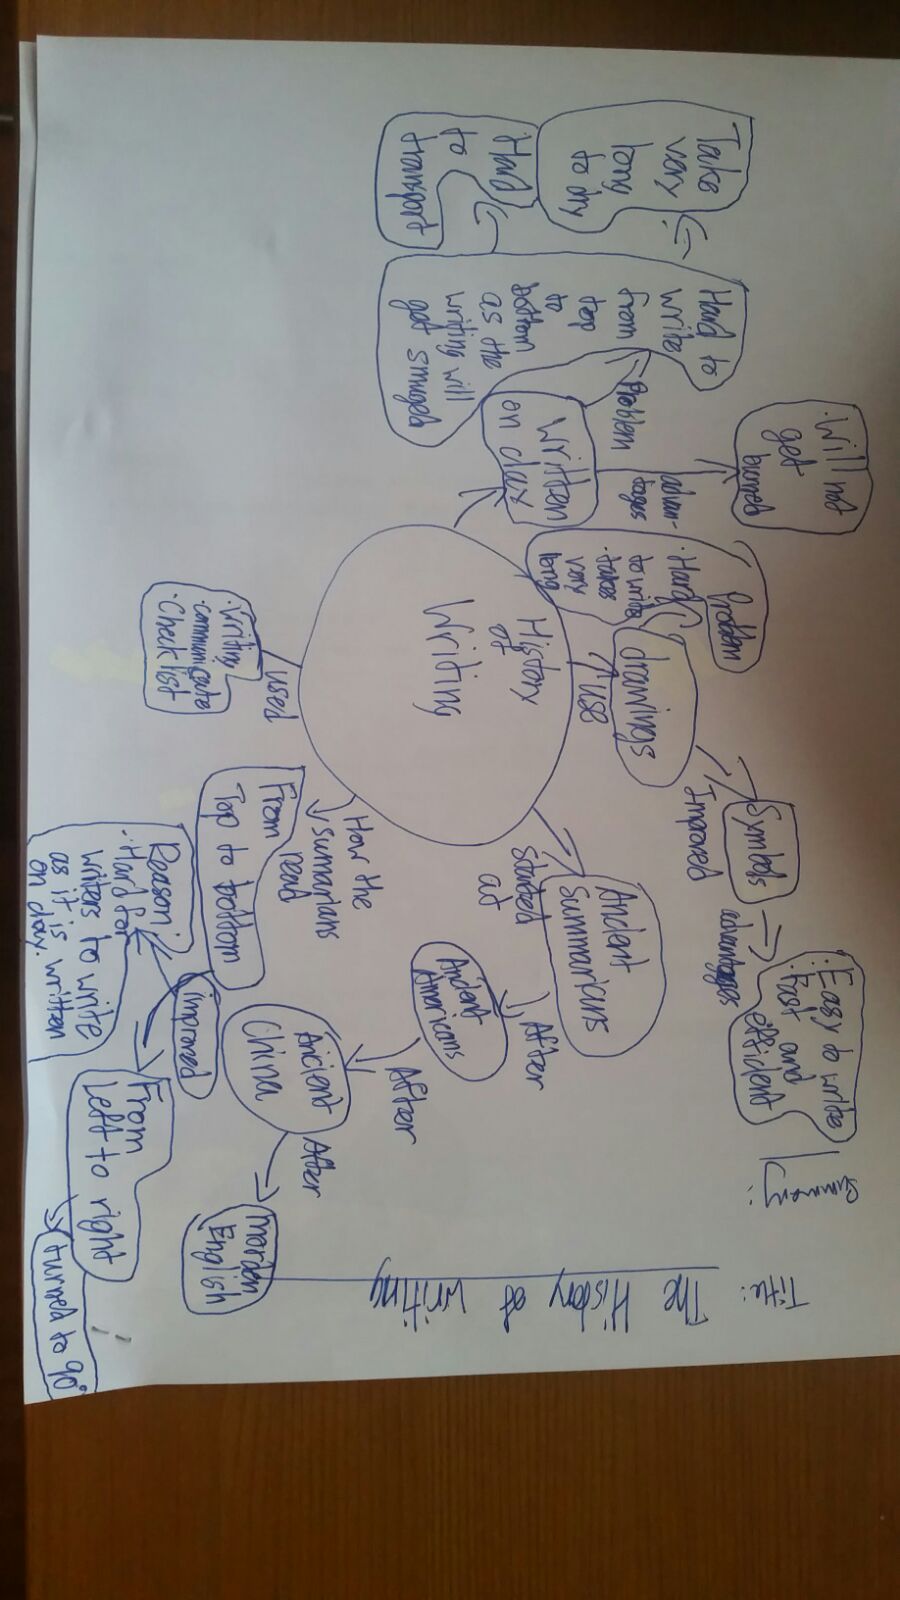 Title: The History of writing
Summary:
History
of
Writing
started
at
Ancient
Summarians
After
Ancient
Americans
After
Ancient
China
After
morden
English
use
drawings
Problem
·Hard
to write
·takes
very
long
Improved
Symbols
advantages
·Easy to write
·Fast and
efficient
Written
on clay
advan-
tages
·Will not
get
burned
Problem
Hard to
write
from
top
to
bottom
as the
writing will
get smuged
Take
very
long
to dry
Hard
to
transport
used
·Writing
·communicate
·Checklist
How the
summarians
read
From
Top to bottom
improved
Reason:
·Hard for
writers to write
as it is written
on clay.
From
Left to right
turned to 90°